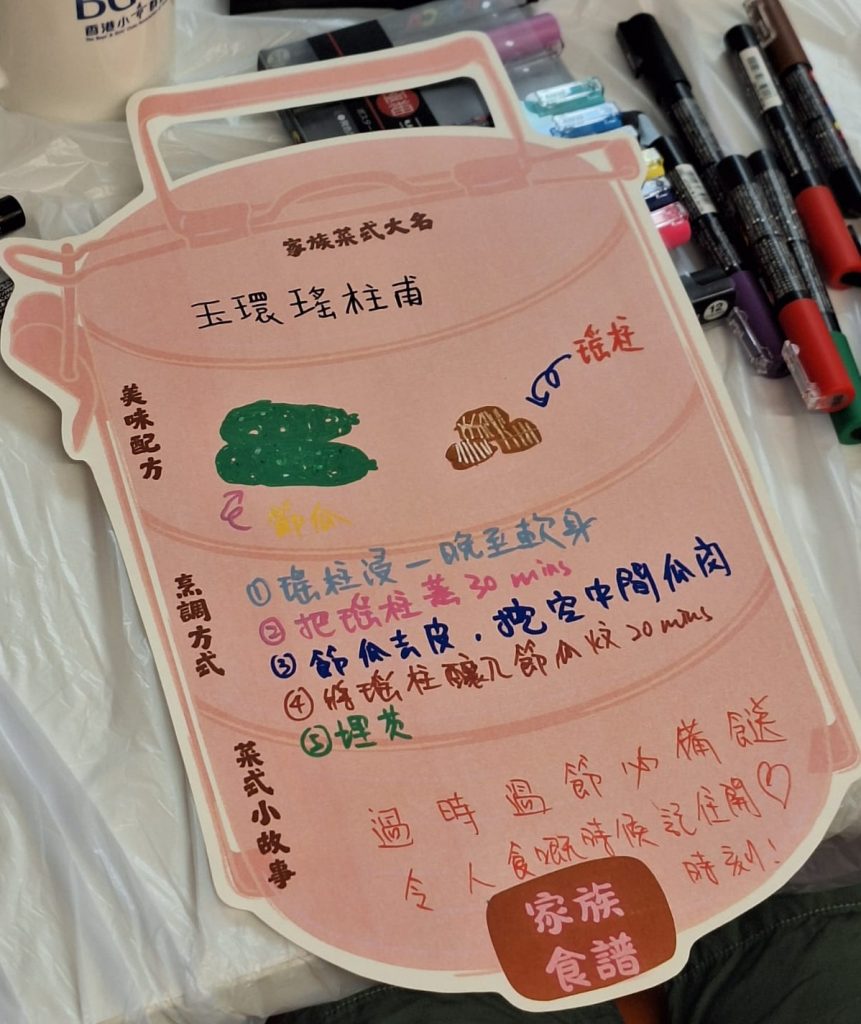 香港小童群
家族菜式大名
玉環瑤柱甫
美味配方
瑤柱
節瓜
烹調方式
①瑤柱浸一晚至軟身
②把瑤柱蒸30 mins
③節瓜去皮，挖空中間瓜肉
④將瑤柱釀入節瓜炆20 mins
⑤埋芡
菜式小故事
過時過節必備餸
令人食嘅時候記住開♡
時刻！
家族
食譜
12